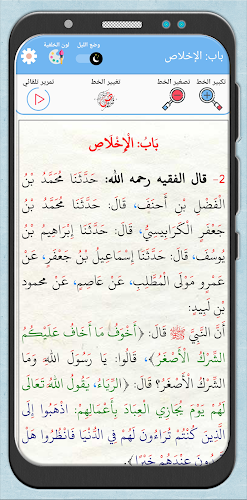 باب: الإخلاص
وضع الليل
لون الخلفية
تكبير الخط
تصغير الخط
تغيير الخط
تمرير تلقائي
بَابُ: الْإِخْلَاصِ
2- قال الفقيه رحمه الله: حَدَّثَنَا مُحَمَّدُ بْنُ
الْفَضْلِ بْنِ أَحْنَفَ، قَالَ: حَدَّثَنَا مُحَمَّدُ بْنُ
جَعْفَرٍ الْكَرَابِيسِيُّ، قَالَ: حَدَّثَنَا إِبْرَاهِيمُ بْنُ
يُوسُفَ، قَالَ: حَدَّثَنَا إِسْمَاعِيلُ بْنُ جَعْفَرٍ، عَنْ
عَمْرٍو مَوْلَى الْمُطَّلِبِ، عَنْ عَاصِمٍ، عَنْ محمود
بْنِ لَبِيدٍ:
أَنَّ النَّبِيَّ ﷺ قَالَ: «أَخْوَفُ مَا أَخَافُ عَلَيْكُمُ
الشِّرْكُ الْأَصْغَرُ»، قَالُوا: يَا رَسُولَ اللَّهِ وَمَا
الشِّرْكُ الْأَصْغَرُ؟ قَالَ: «الرِّيَاءُ، يَقُولُ اللَّهُ تَعَالَى
لَهُمْ يَوْمَ يُجَازِي الْعِبَادَ بِأَعْمَالِهِمْ: اذْهَبُوا إِلَى
الَّذِينَ كُنْتُمْ تُرَاءُونَ لَهُمْ فِي الدُّنْيَا فَانْظُرُوا هَلْ
تَجِدُونَ عِنْدَهُمْ خَيْرًا»